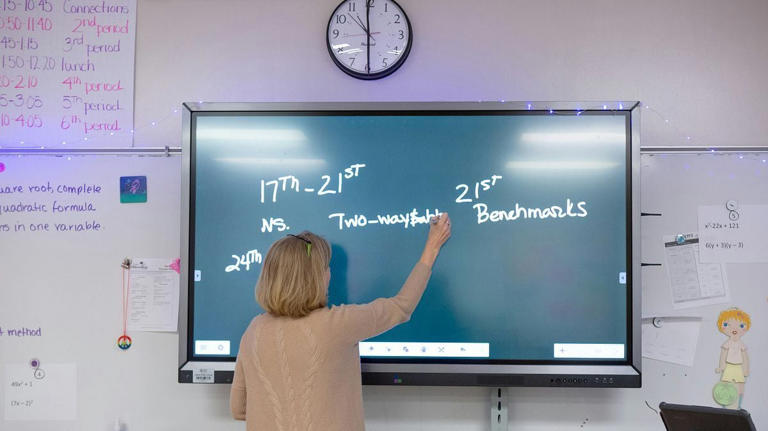 1:15-10:45 Connections
0:50-11:40 2nd period
:45-1:15 3rd period
11:50-12:20 lunch
20-2:10 4th period
5-3:05 5th period
10-4:05 6th period
uare root, complete
quadratic formula
ns in one variable.
t method
49x² + 1
(7x - 2)²
17TH - 21ST
NS. Two-way
24TH
21ST
Benchmarks
x²-22x + 121
6(y + 3)(y - 3)